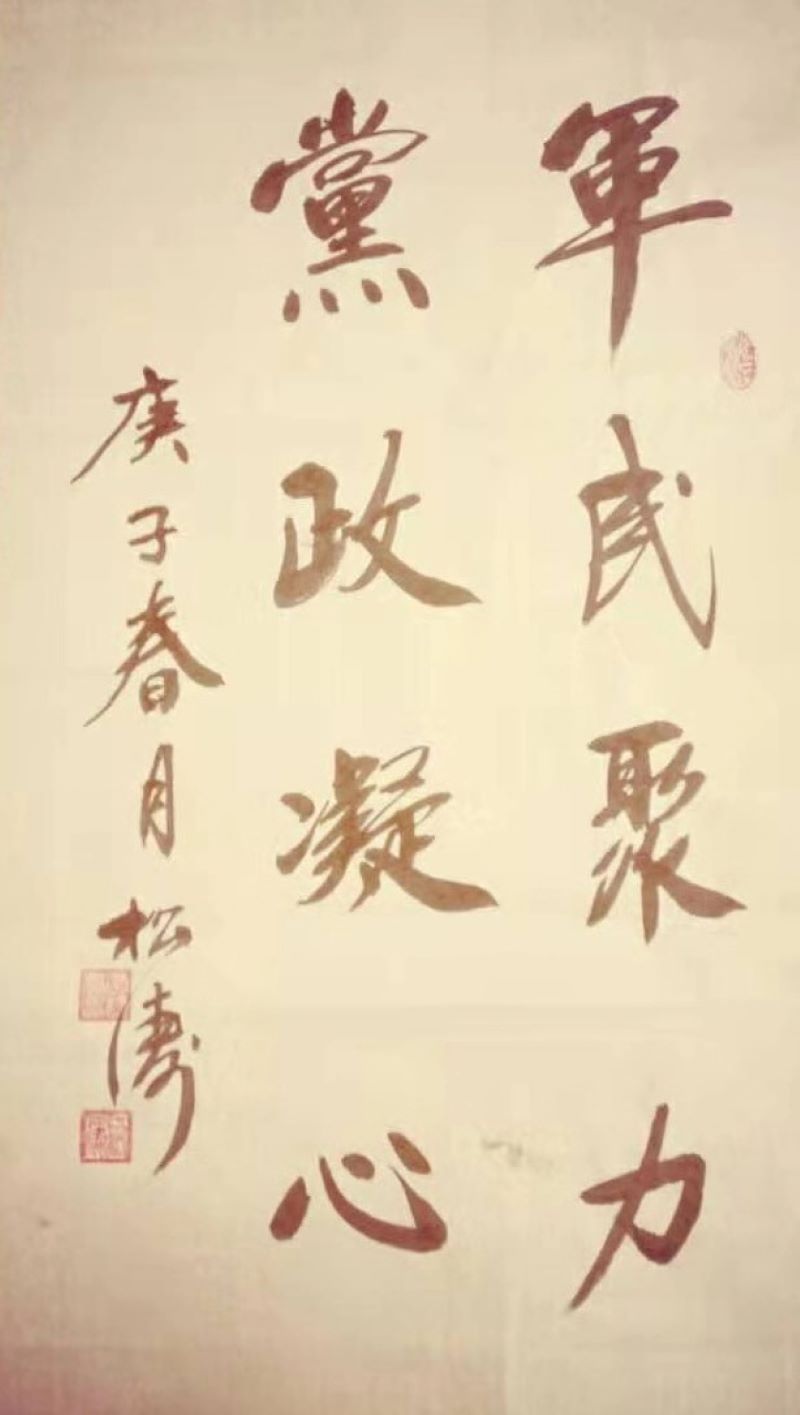 軍民聚力
黨政凝心
庚子春月松濤